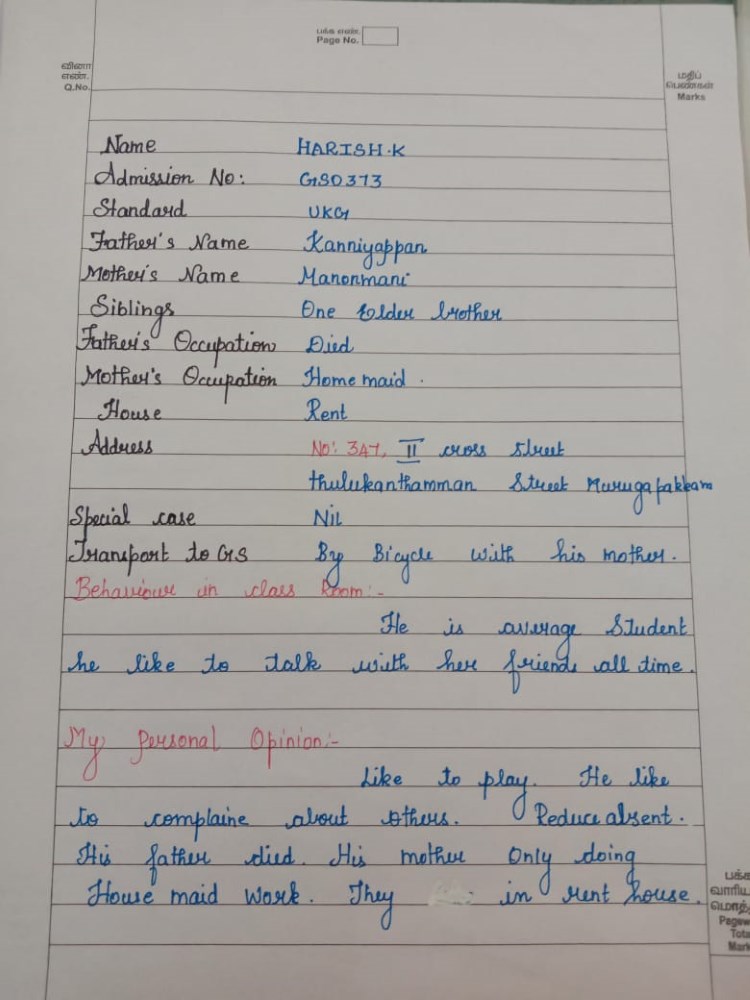 பக்க எண்.
Page No.
வினா
எண்.
Q.No.
மதிப்
பெண்கள்
Marks
Name HARISH.K
Admission No: GS0373
Standard UKG
Father's Name Kanniyappan
Mother's Name Manonmani
Siblings One Elder brother
Father's Occupation Died
Mother's Occupation Home maid.
House Rent
Address No: 347, II cross street
thulukanthamman Street Murugapakkam
Special case Nil
Transport to GS By Bicycle with his mother.
Behaviour in class Room:-
He is average Student
he like to talk with her friends all time.
My personal Opinion:-
Like to play. He like
to complaine about others. Reduce absent.
His father died. His mother Only doing
House maid work. They in rent house.
பக்க
வாரிய
மொத்
Pagew
Tota
Mark